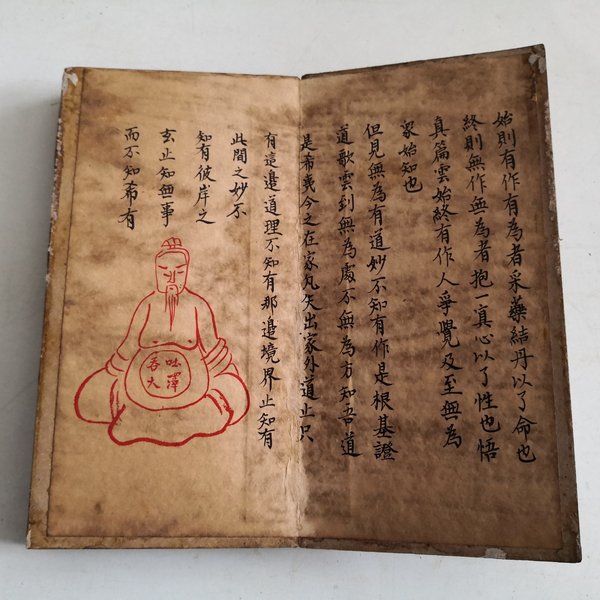 始則有作有為者采藥結丹以了命也
終則無作無為者抱一㝠心以了性也悟
真篇雲始終有作人爭覺及至無為
衆始知也
但見無為有道妙不知有作是根基證
道歌雲到無為處不無為方知吾道
是希夷今之在家凡夫出家外道止只
有這邉道理不知有那邉境界止知有
此間之妙不
知有彼岸之
玄止知無事
而不知希有